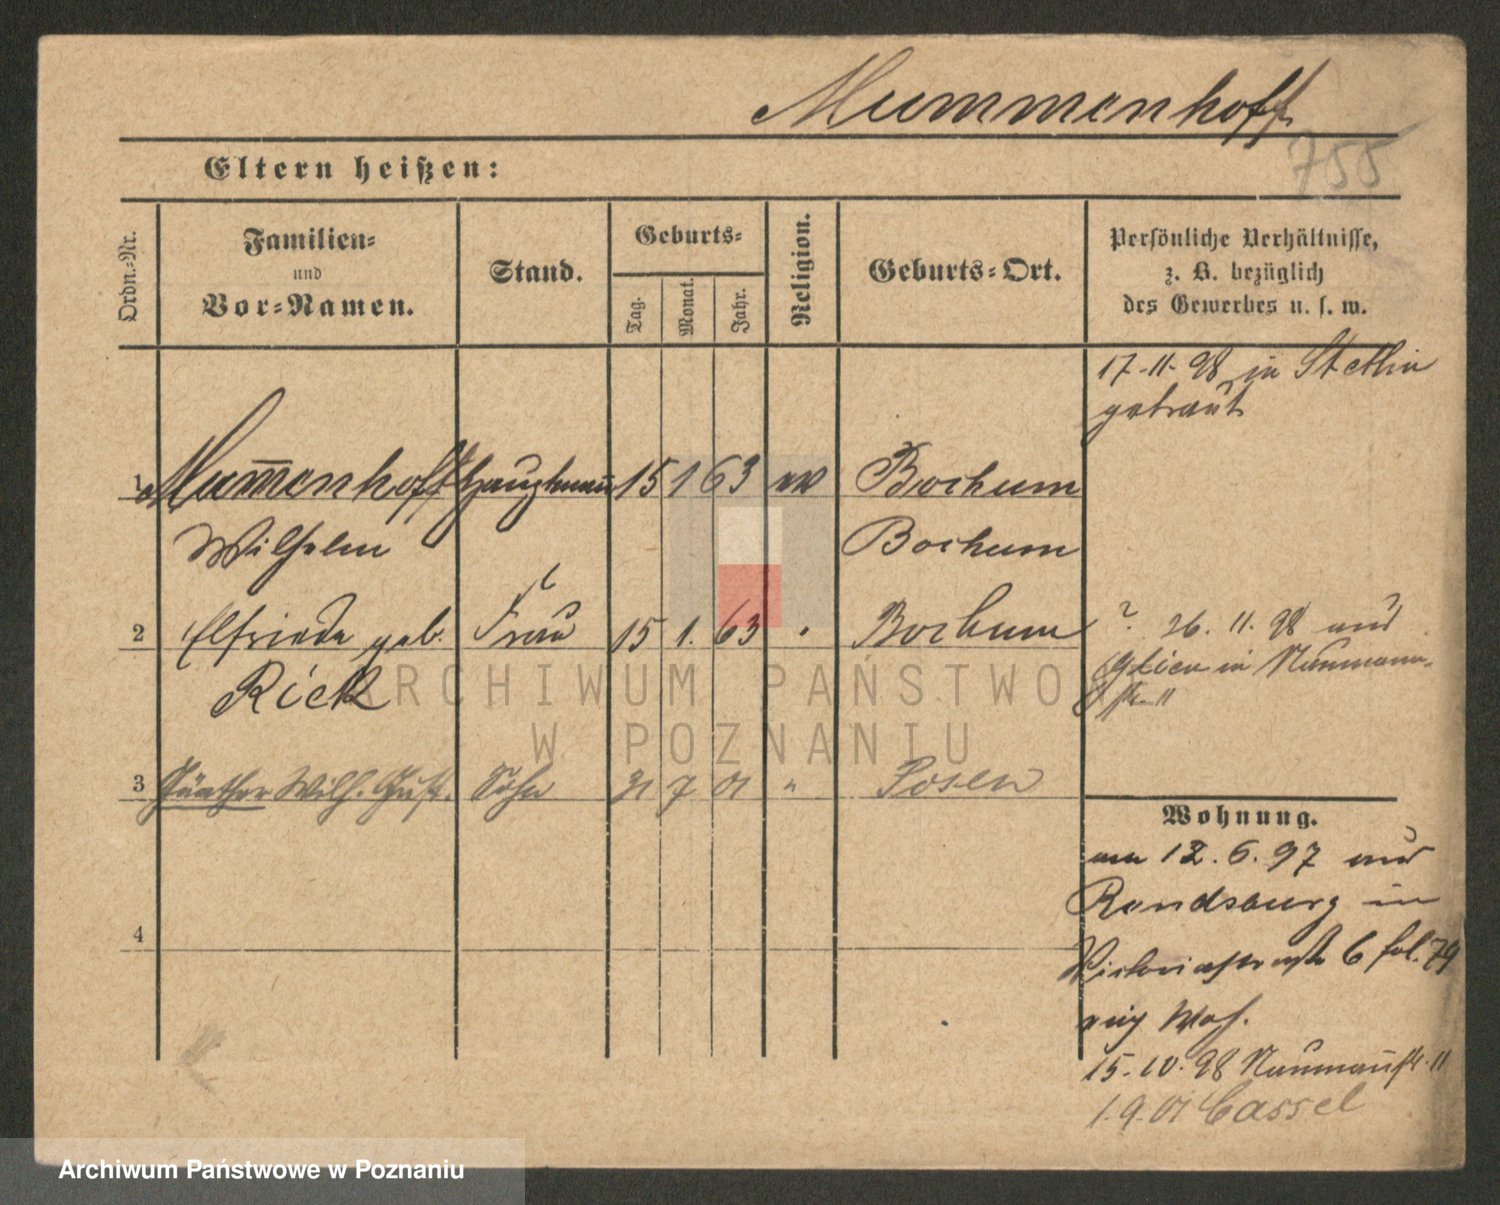 Mummenhoff
755
Eltern heißen:
Ordn.-Nr.
Familien-
und
Vor-Namen.
Stand.
Geburts-
Tag.
Monat.
Jahr.
Religion.
Geburts-Ort.
Persönliche Verhältnisse,
z. B. bezüglich
des Gewerbes u. s. w.
17.11.98 in Stettin
getraut
1 Mum̅enhoff Hauptmann 15 1 63 Bochum
Wilhelm Bochum
2 Elfriede geb. Frau 15 1. 63 " Bochum
Rick
? 26. 11. 98 aus
in Naumann-
str. 11
3 Günther Wilh. Gust. Sohn 31 7 01 " Posen
4
Wohnung.
am 12.6.97 aus
Rendsburg in
Victoriastraße 6 fol. 79
15.10.98 Nauman̅str. 11
1.9.01 Cassel
ARCHIWUM PAŃSTWO
W POZNANIU
Archiwum Państwowe w Poznaniu